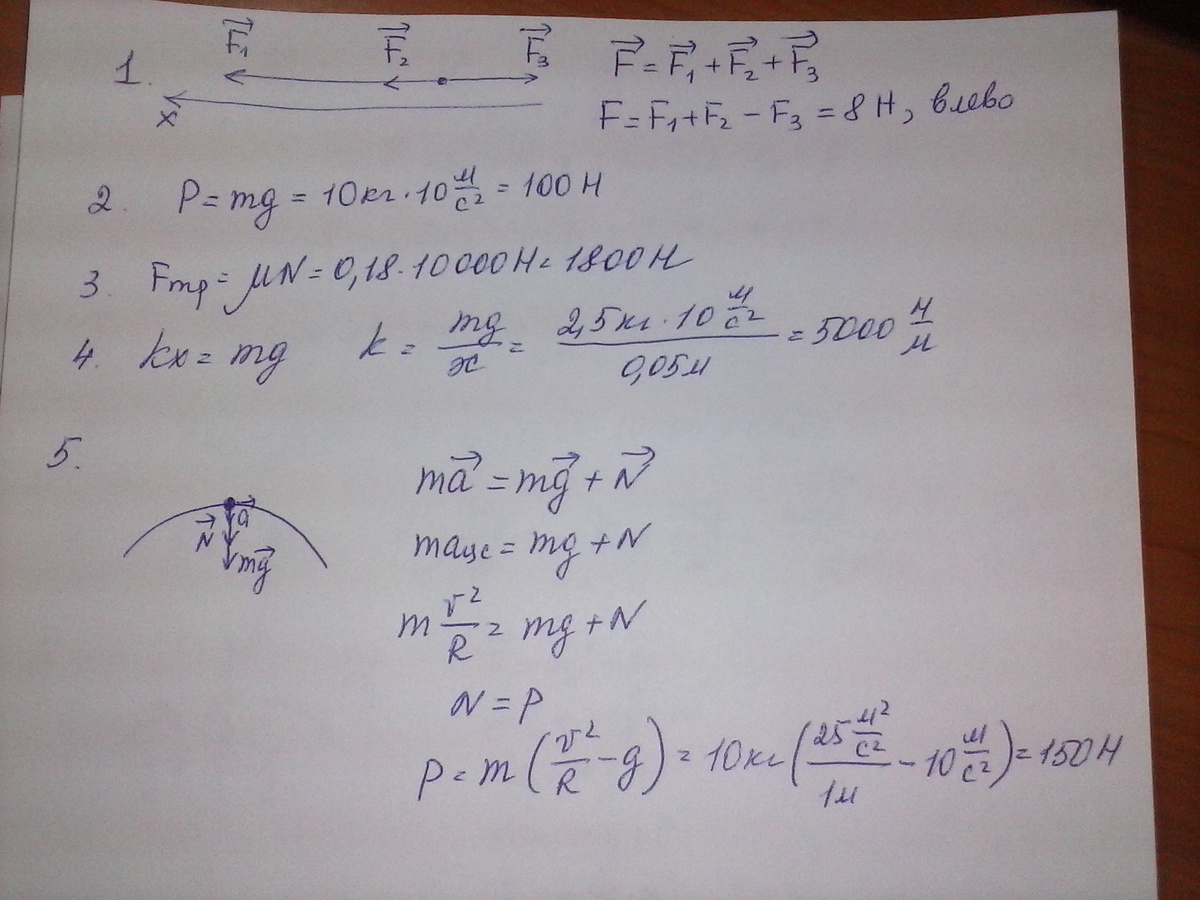 1. F⃗₁ F⃗₂ F⃗₃ F⃗ = F⃗₁ + F⃗₂ + F⃗₃
x F = F₁ + F₂ − F₃ = 8 Н, влево
2. P = mg = 10 кг · 10 м/с² = 100 Н
3. Fтр = μN = 0,18 · 10000 Н = 1800 Н
4. kx = mg k = mg/x = 2,5 кг · 10 м/с² / 0,05 м = 5000 Н/м
5.
ma⃗ = mg⃗ + N⃗
a⃗
N⃗
mg⃗
maцс = mg + N
m v²/R = mg + N
N = P
P = m (v²/R − g) = 10 кг (25 м²/с² / 1 м − 10 м/с²) = 150 Н